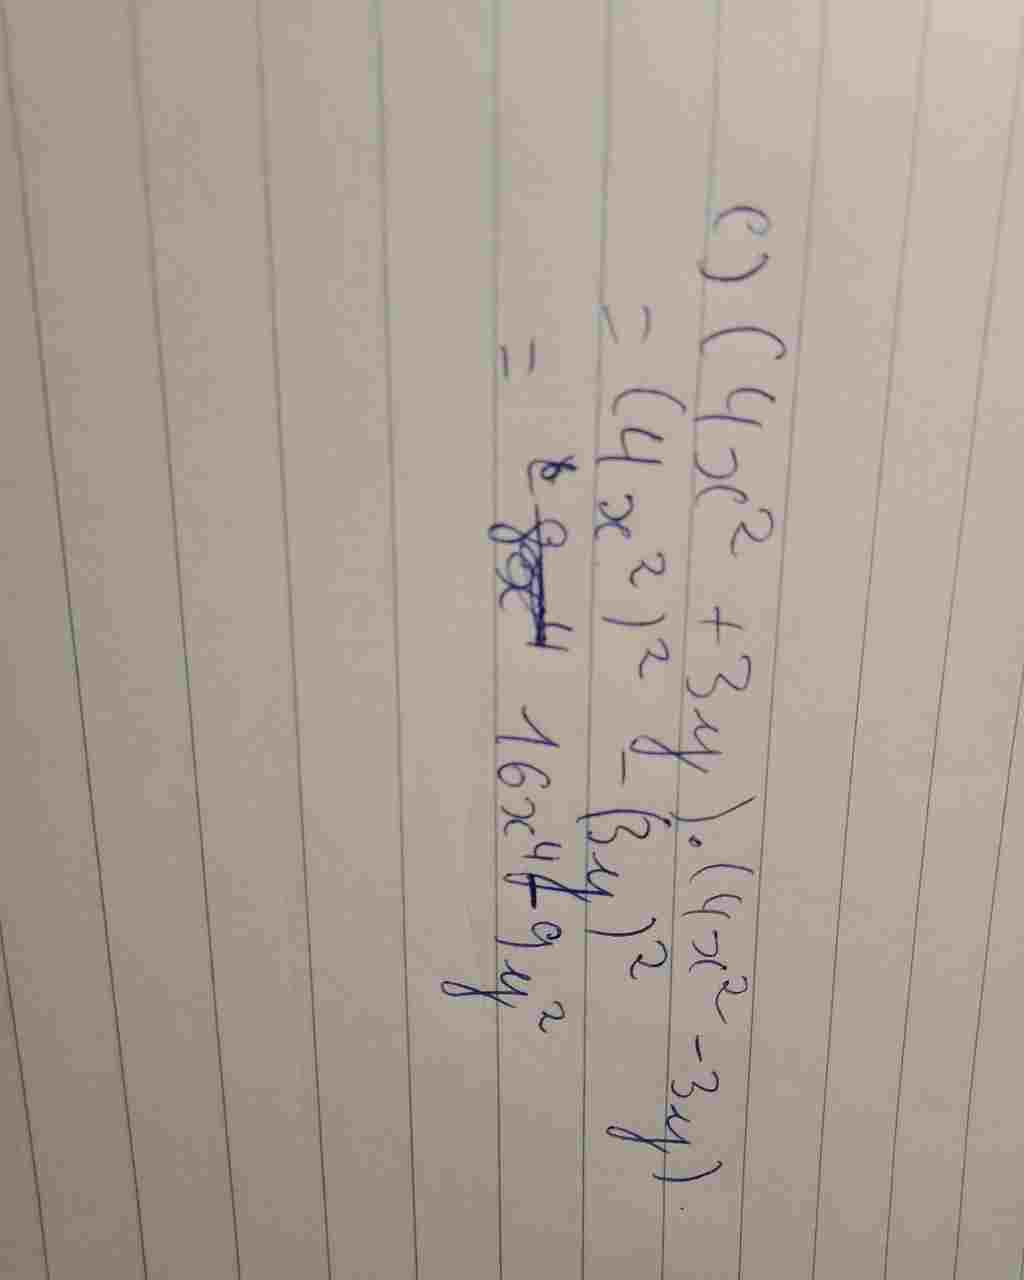 c) (4x² + 3y).(4x² - 3y)
= (4x²)² - (3y)²
= 16x⁴ - 9y²